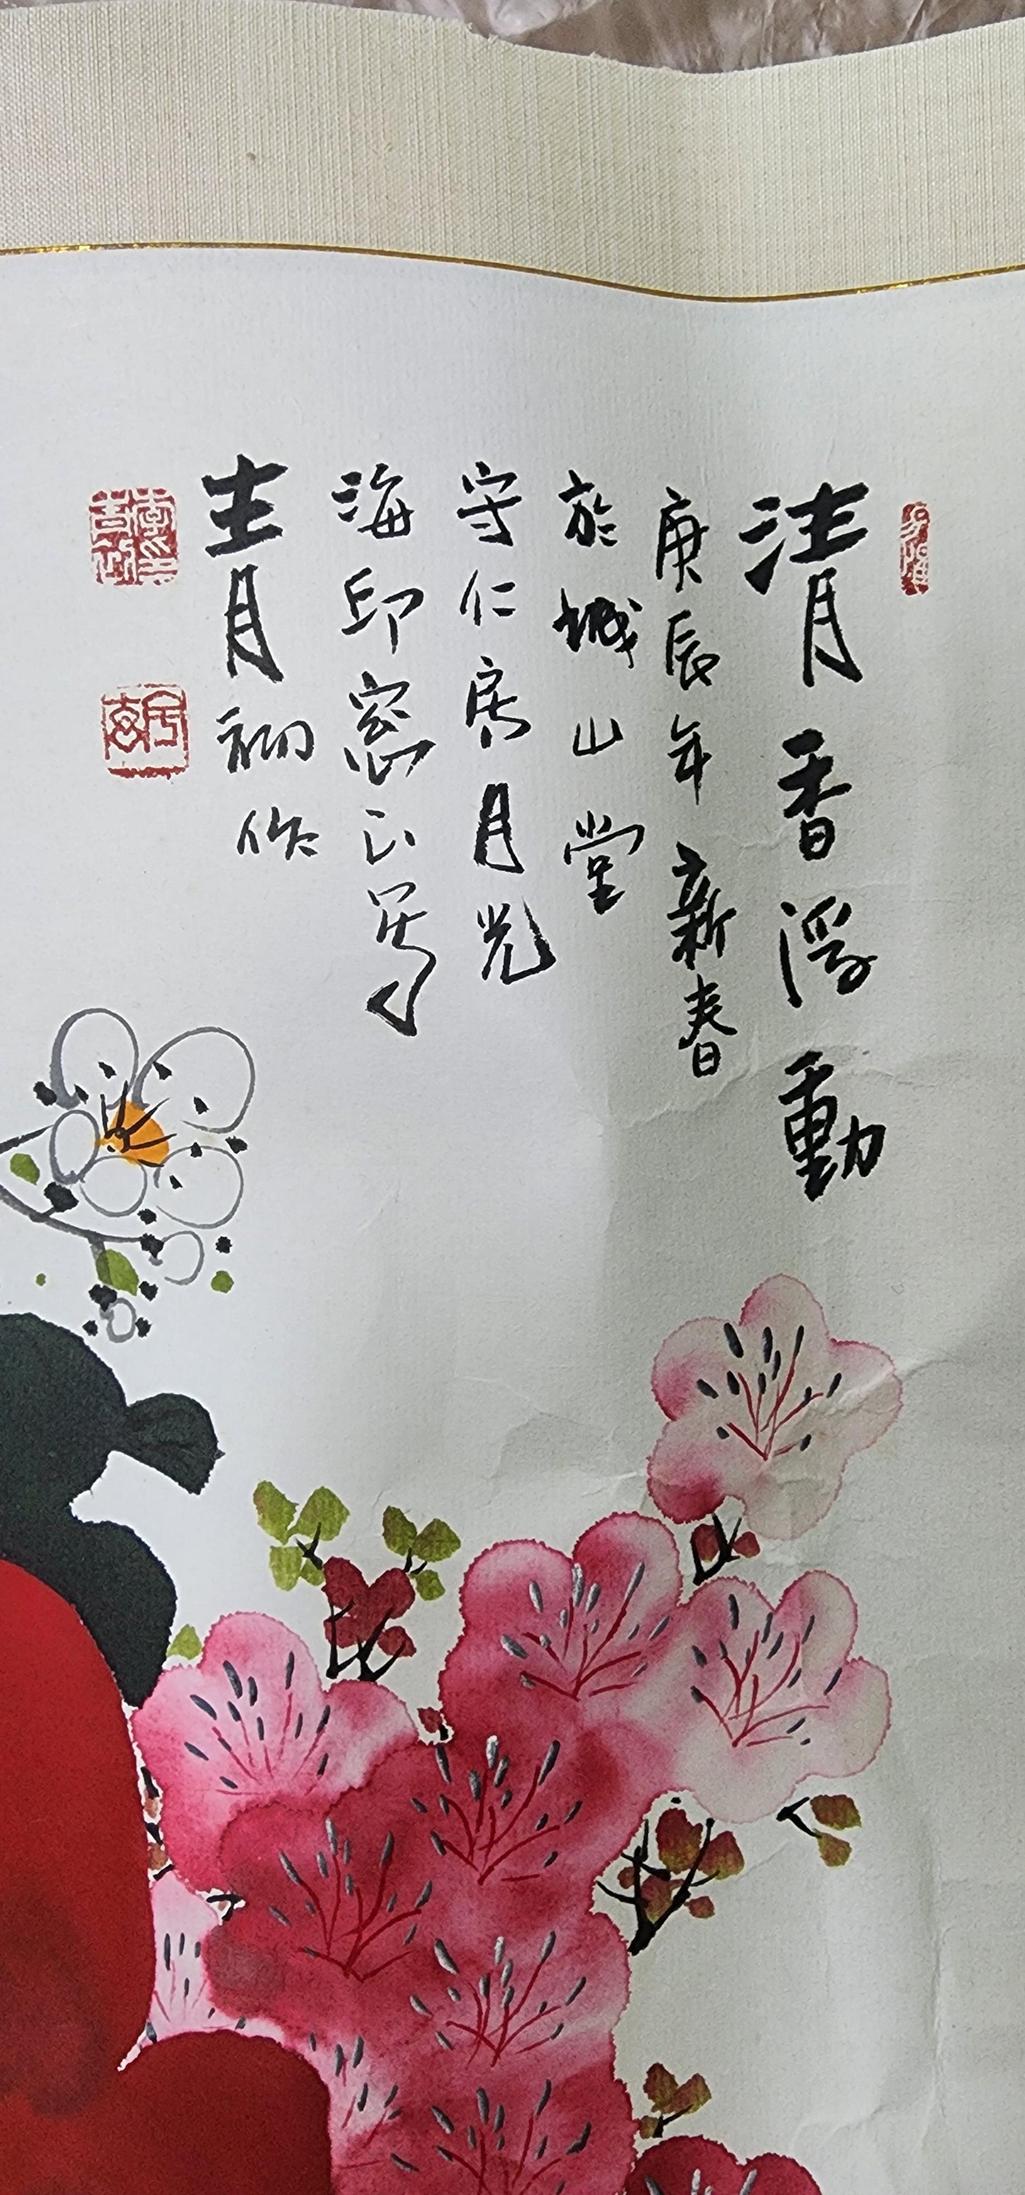 清香浮動
庚辰年新春
於城山堂
守仁房月光
海印窓下
青月 作